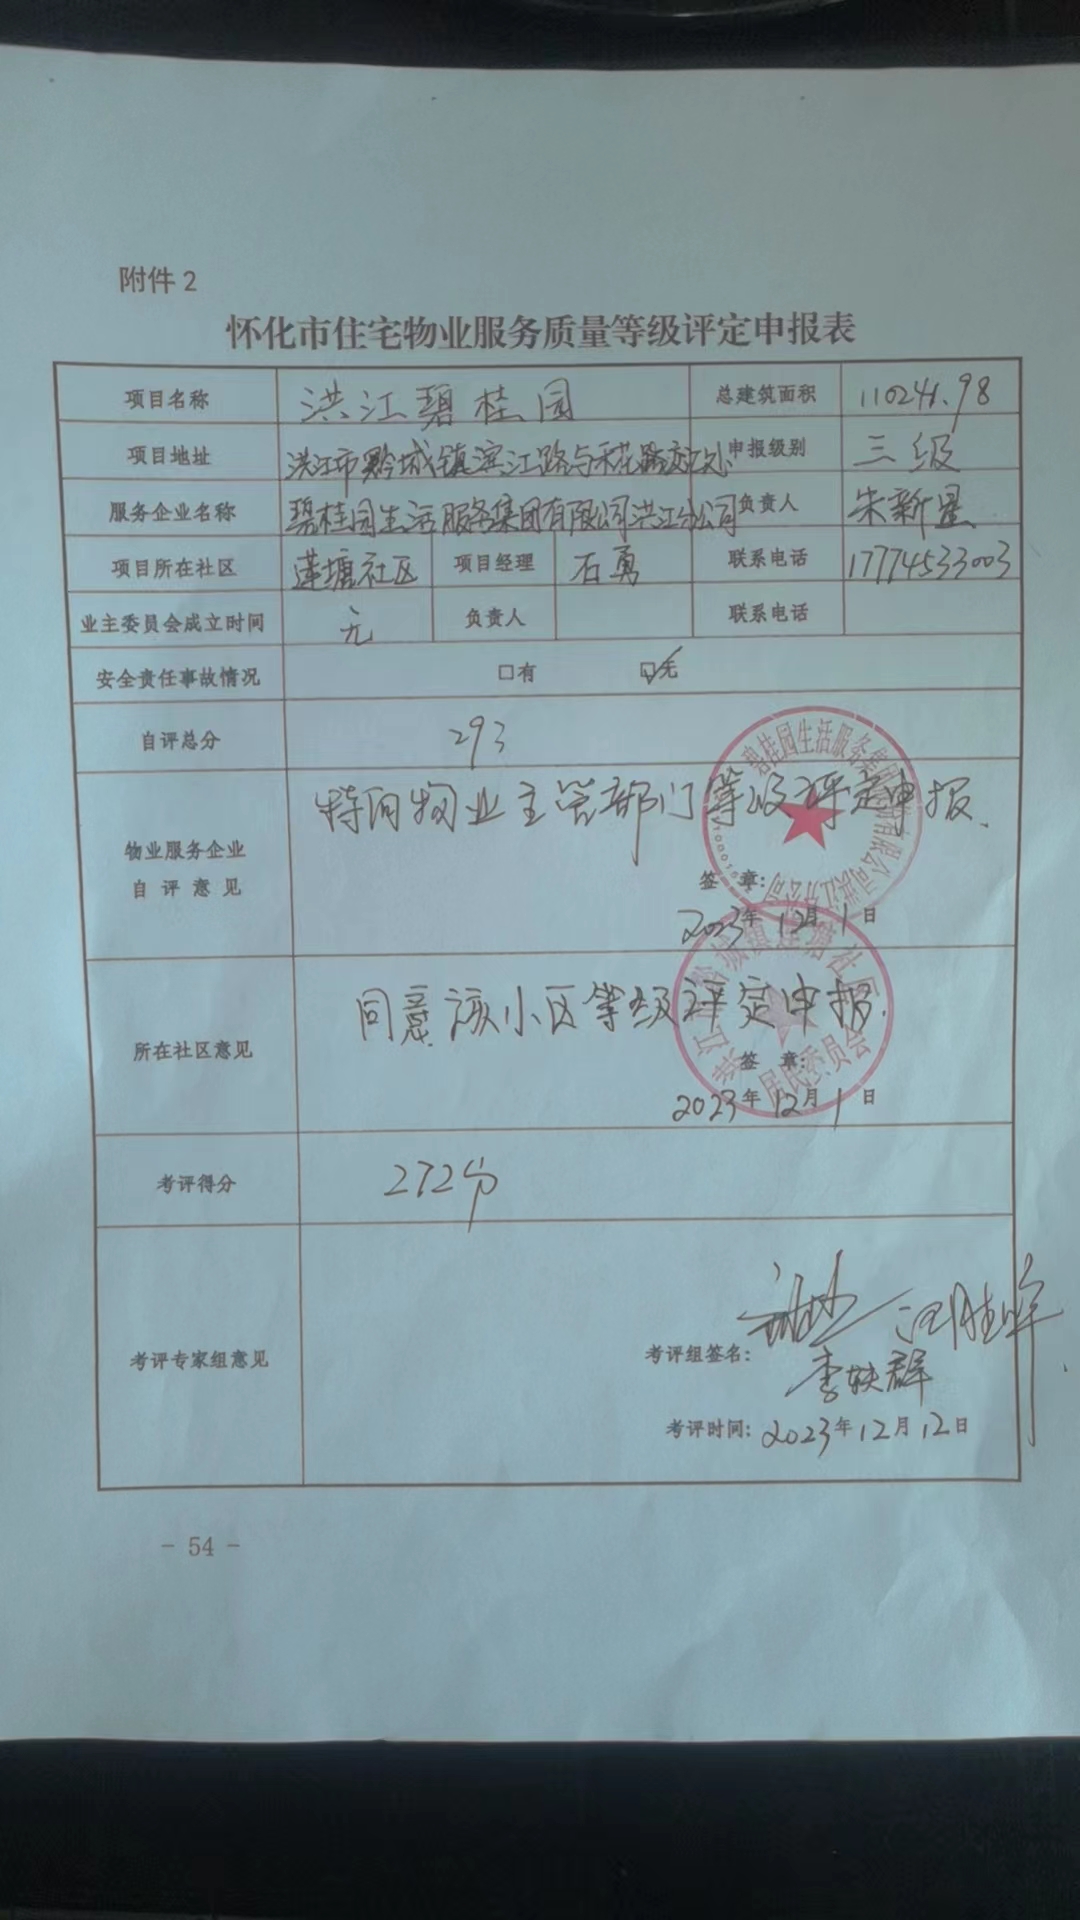 附件2
怀化市住宅物业服务质量等级评定申报表
项目名称 洪江碧桂园 总建筑面积 110241.98
项目地址 洪江市黔城镇滨江路与禾花路交汇处 申报级别 三级
服务企业名称 碧桂园生活服务集团有限公司洪江分公司 负责人 朱新星
项目所在社区 莲塘社区 项目经理 石勇 联系电话 17774533003
业主委员会成立时间 无 负责人 联系电话
安全责任事故情况 □有 ☑无
自评总分 293
物业服务企业
自评意见
特向物业主管部门等级评定申报.
签 章:
2023年12月1日
碧桂园生活服务集团有限公司洪江分公司
所在社区意见
同意该小区等级评定申报.
签 章:
2023年12月1日
洪江市黔城镇莲塘社区
居民委员会
考评得分 272分
考评专家组意见
考评组签名:
李轶群
考评时间: 2023年12月12日
- 54 -